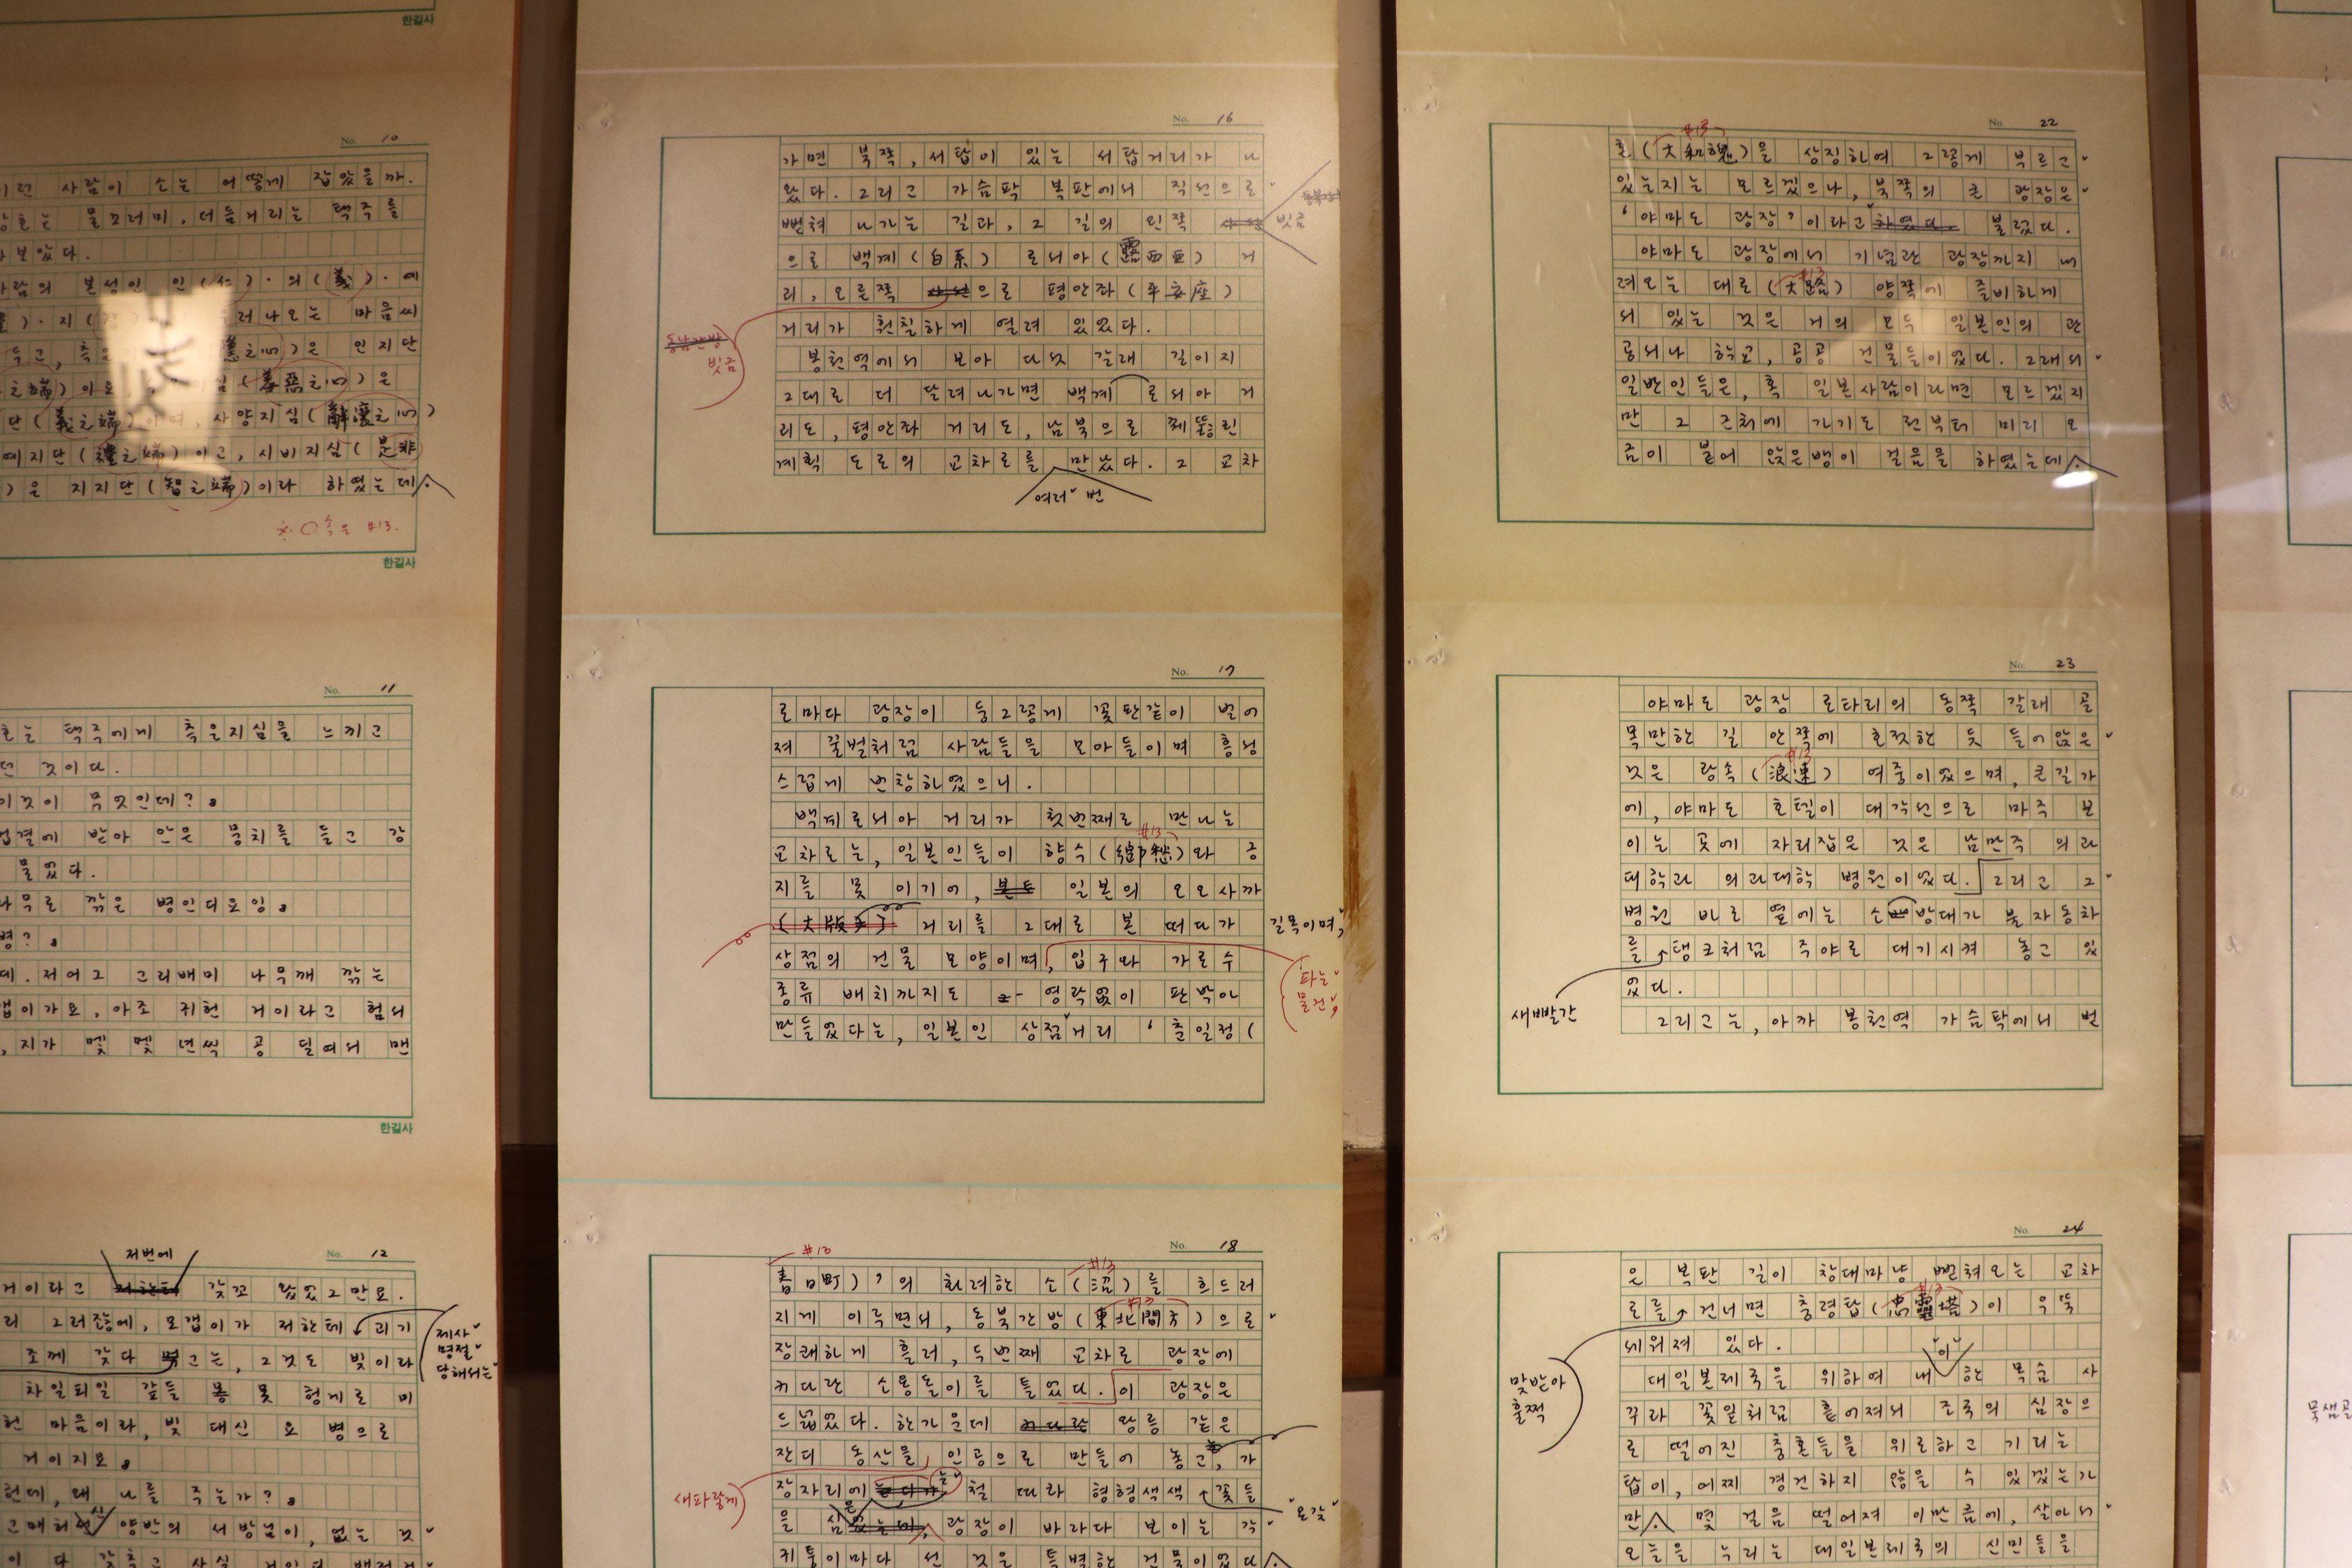 한길사
No. 10
이런 사람이 소는 어떻게 잡았을까.
물끄러미, 더듬거리는 택주를
보았다.
사람의 본성인 인(仁)·의(義)·예
)·지( 러나오는 마음씨
두고, 측 은 인지단
(羞惡之心)은
단(義之端)이며, 사양지심(辭讓之心)
예지단(禮之端)이고, 시비지심(是非
)은 지지단(智之端)이라 하였는데
※○속은 #13.
한길사
No. 11
호는 택주에게 측은지심을 느끼고
던 것이다.
이것이 무엇인데?
겁결에 받아 안은 뭉치를 들고 강
물었다.
나무로 깎은 병인디요잉.
병?
데. 저어그 그리배미 나무깨 깎는
갭이가요, 아조 귀헌 거이라고 험서
, 지가 몇 몇 년씩 공 딜여서 맨
한길사
No. 12
저번에
거이라고 갖꼬 왔었그만요.
리 그러장에, 모갭이가 저한테 괴기
제사
명절
당해서는
조께 갖다 먹고는, 그것도 빚이라
차일피일 갚들 못 헝게로 미
헌 마음이라, 빚 대신 요 병으로
거이지요.
헌데, 왜 나를 주는가?
양반의 서방님이, 없는 것
No. 16
가면 북쪽, 서탑이 있는 서탑거리가 나
왔다. 그리고 가슴팍 복판에서 직선으로
뻗쳐 나가는 길과, 그 길의 왼쪽
빗금
으로 백계(白系) 로서아(露西亞) 거
리, 오른쪽 으로 평안좌(平安座)
동남간방
빗금
거리가 훤칠하게 열려 있었다.
봉천역에서 보아 다섯 갈래 길이지
그대로 더 달려나가면 백계 로서아 거
리도, 평안좌 거리도, 남북으로 꿰뚫린
계획 도로의 교차로를 만났다. 그 교차
여러 번
No. 17
로마다 광장이 둥그렇게 꽃판같이 벌어
져 꿀벌처럼 사람들을 모아들이며 흥성
스럽게 번창하였으니.
백계로서아 거리가 첫번째로 만나는
#13
교차로는, 일본인들이 향수(鄕愁)와 긍
지를 못 이기어, 일본의 오오사까
(大阪 ) 거리를 그대로 본 떠다가
길목이며,
상점의 건물 모양이며, 입구와 가로수
파는
물건,
종류 배치까지도 영락없이 판박아
만들었다는, 일본인 상점거리 '춘일정(
No. 18
#13
#13
春日町)'의 화려한 소(沼)를 흐드러
#13
지게 이루면서, 동북간방(東北間方)으로
장쾌하게 흘러, 두번째 교차로 광장에
커다란 소용돌이를 틀었다. 이 광장은
드넓었다. 한가운데 커다란 왕릉 같은
잔디 동산을, 인공으로 만들어 놓고, 가
새파랗게
장자리에 는 철 따라 형형색색 꽃들
오갖
을 심 은 광장이 바라다 보이는 각
귀퉁이마다 선 것은 특별한 건물이었다
No. 22
#13
혼(大和魂)을 상징하여 그렇게 부르고
있는지는 모르겠으나, 북쪽의 큰 광장은
'야마도 광장'이라고 하였다. 불렀다.
야마도 광장에서 기념관 광장까지 내
#13
려오는 대로(大路) 양쪽에 즐비하게
서 있는 것은 거의 모두 일본인의 관
공서나 학교, 공공 건물들이었다. 그래서
일반인들은, 혹 일본사람이라면 모르겠지
만 그 근처에 가기도 전부터 미리 오
금이 붙어 앉은뱅이 걸음을 하였는데.
No. 23
야마도 광장 로타리의 동쪽 갈래 골
목만한 길 안쪽에 호젓한 듯 들어앉은
#13
것은 랑속(浪速) 여중이었으며, 큰길가
에, 야마도 호텔이 대각선으로 마주 보
이는 곳에 자리잡은 것은 남만주 의과
대학과 의과대학 병원이었다. 그리고 그
병원 바로 옆에는 소방대가 불자동차
를 탱크처럼 주야로 대기시켜 놓고 있
새빨간
었다.
그리고는, 아까 봉천역 가슴팍에서 벋
No. 24
은 복판 길이 창대마냥 뻗쳐오는 교차
#13
로를 건너면 충령탑(忠靈塔)이 우뚝
맞받아
훌쩍
세워져 있다.
이
대일본제국을 위하여 내 한 목숨 사
꾸라 꽃잎처럼 흩어져서 조국의 심장으
로 떨어진 충혼들을 위로하고 기리는
탑이, 어찌 경건하지 않을 수 있겠는가
만 몇 걸음 떨어져 이만큼에, 살아서
오늘을 누리는 대일본제국의 신민들을
묵샘골